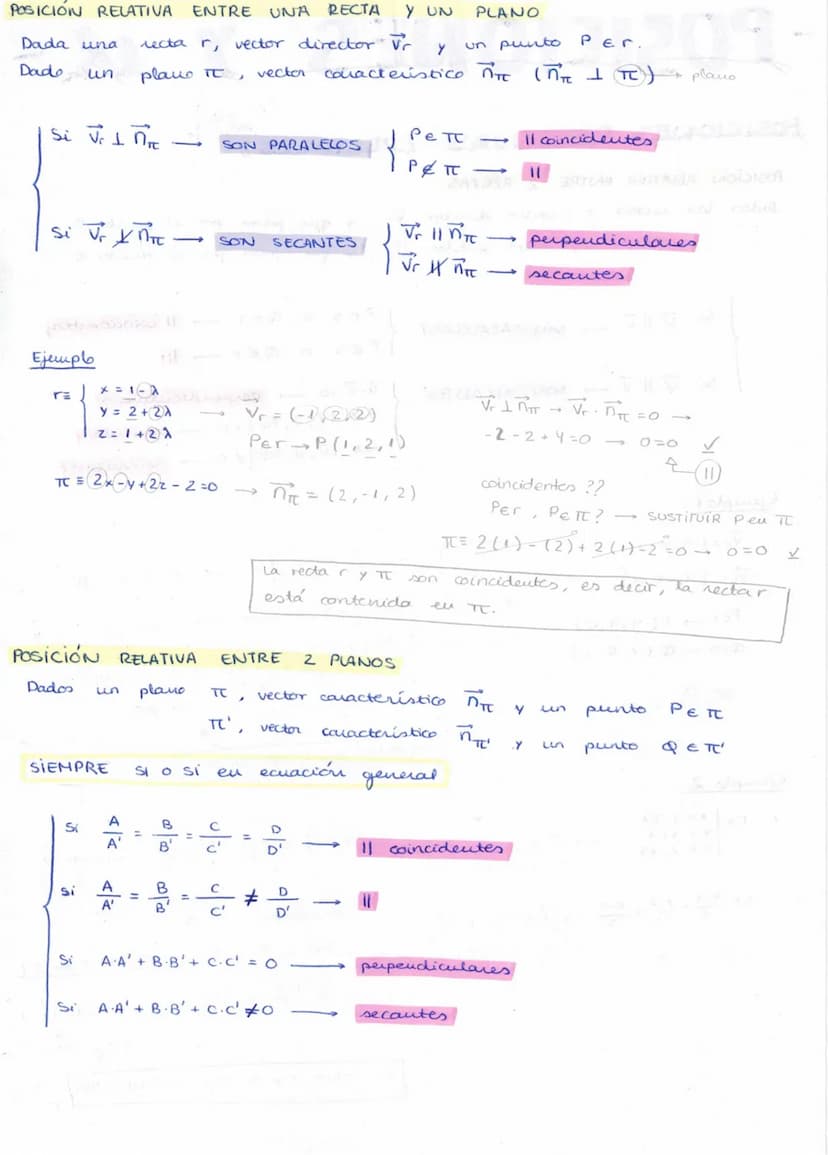 POSICIÓN RELATIVA ENTRE UNA RECTA Y UN PLANO
Dada una recta r, vector director v⃗r y un punto P ∈ r.
Dado un plano π, vector característico n⃗π (n⃗π ⊥ π) → plano
Si v⃗r ⊥ n⃗π → SON PARALELOS { P ∈ π → || coincidentes
P ∉ π → ||
Si v⃗r ⊥̸ n⃗π → SON SECANTES { v⃗r || n⃗π → perpendiculares
v⃗r ∦ n⃗π → secantes
Ejemplo
r ≡ { x = 1 - λ
y = 2 + 2λ → v⃗r = (-1, 2, 2)
z = 1 + 2λ P ∈ r → P (1, 2, 1)
π ≡ 2x - y + 2z - 2 = 0 → n⃗π = (2, -1, 2)
v⃗r ⊥ n⃗π → v⃗r · n⃗π = 0 →
-2 - 2 + 4 = 0 → 0 = 0 ✓
||
coincidentes ??
P ∈ r, P ∈ π? → SUSTITUIR P en π
π ≡ 2(1) - (2) + 2(1) - 2 = 0 → 0 = 0 ✓
La recta r y π son coincidentes, es decir, la recta r
está contenida en π.
POSICIÓN RELATIVA ENTRE 2 PLANOS
Dados un plano π, vector característico n⃗π y un punto P ∈ π
π', vector característico n⃗π' y un punto Q ∈ π'
SIEMPRE SI O SI en ecuación general
Si A/A' = B/B' = C/C' = D/D' → || coincidentes
Si A/A' = B/B' = C/C' ≠ D/D' → ||
Si A·A' + B·B' + C·C' = 0 → perpendiculares
Si A·A' + B·B' + C·C' ≠ 0 → secantes